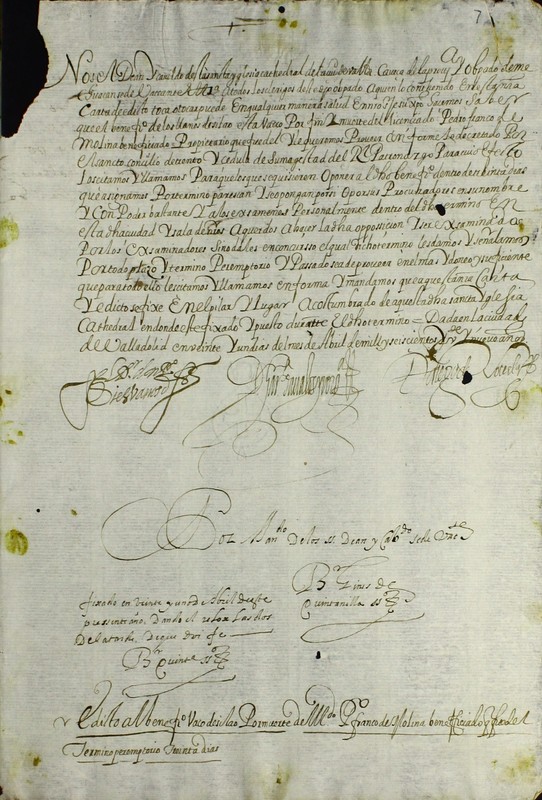 7
Nos el Dean y cavildo de la santa yglesia cathedral de la ciudad de Vallid Caveça del obpado de me
A todos los clerigos deste obpado Aquien lo contenido En esta nra
Carta de edito toca o tocar puede En qualquier manera salud En nro señor Jesuxpo hacemos saver
que el benefiº de los llanos de silao esta Vaco Por fin y muerte del licenciado Pedro franco de
molina beneficiado Propietario que fue del y le queremos Proveer en forma de decreto Del
Sancto concilio de trento y cedula de su magestad del Rl Patronadgo Para cuio efecto
los citamos y llamamos Para que los que quisieren oponer a dho benefº dentro de treinta dias
que asignamos Por termino parescan y se opongan por si o por sus Procuradores en su nombre
y con Poder bastante y a los examenes Personalmente dentro del dho termino En
esta dha ciudad y sala de nros Acuerdos Abaçer la dha opposicion y ser examinados
Por los Examinadores Sinodales en concurso el qual dho termino les damos y señalamos
Por todo plazo y termino Peremptorio y Passado se a de proveer en el mas ydoneo y suficiente
que para todo ello les citamos y llamamos en forma y mandamos que aquesta nra Carta
y edicto se fixe En el pilar y lugar Acostumbrado de aquesta dha sancta yglesia
Cathedral en donde este fixado y puesto durante El dho termino = Dada en la ciudad
de Valladolid en veinte y un dias del mes de Abril de mill y seiscientos y
Por Mandº de los ss. Dean y Cabdo sede Vacte
Br Gines de
Quintanilla ssº
fixado en veinte y uno de Abril deste
presente año. Dando el relox las dos
de la tarde. De que doi fe
Br Quinte ssº
Edito al benefiº Vaco de silao Por muerte de Pº franco de Molina beneficiado q fue del
Termino peremptorio treinta dias